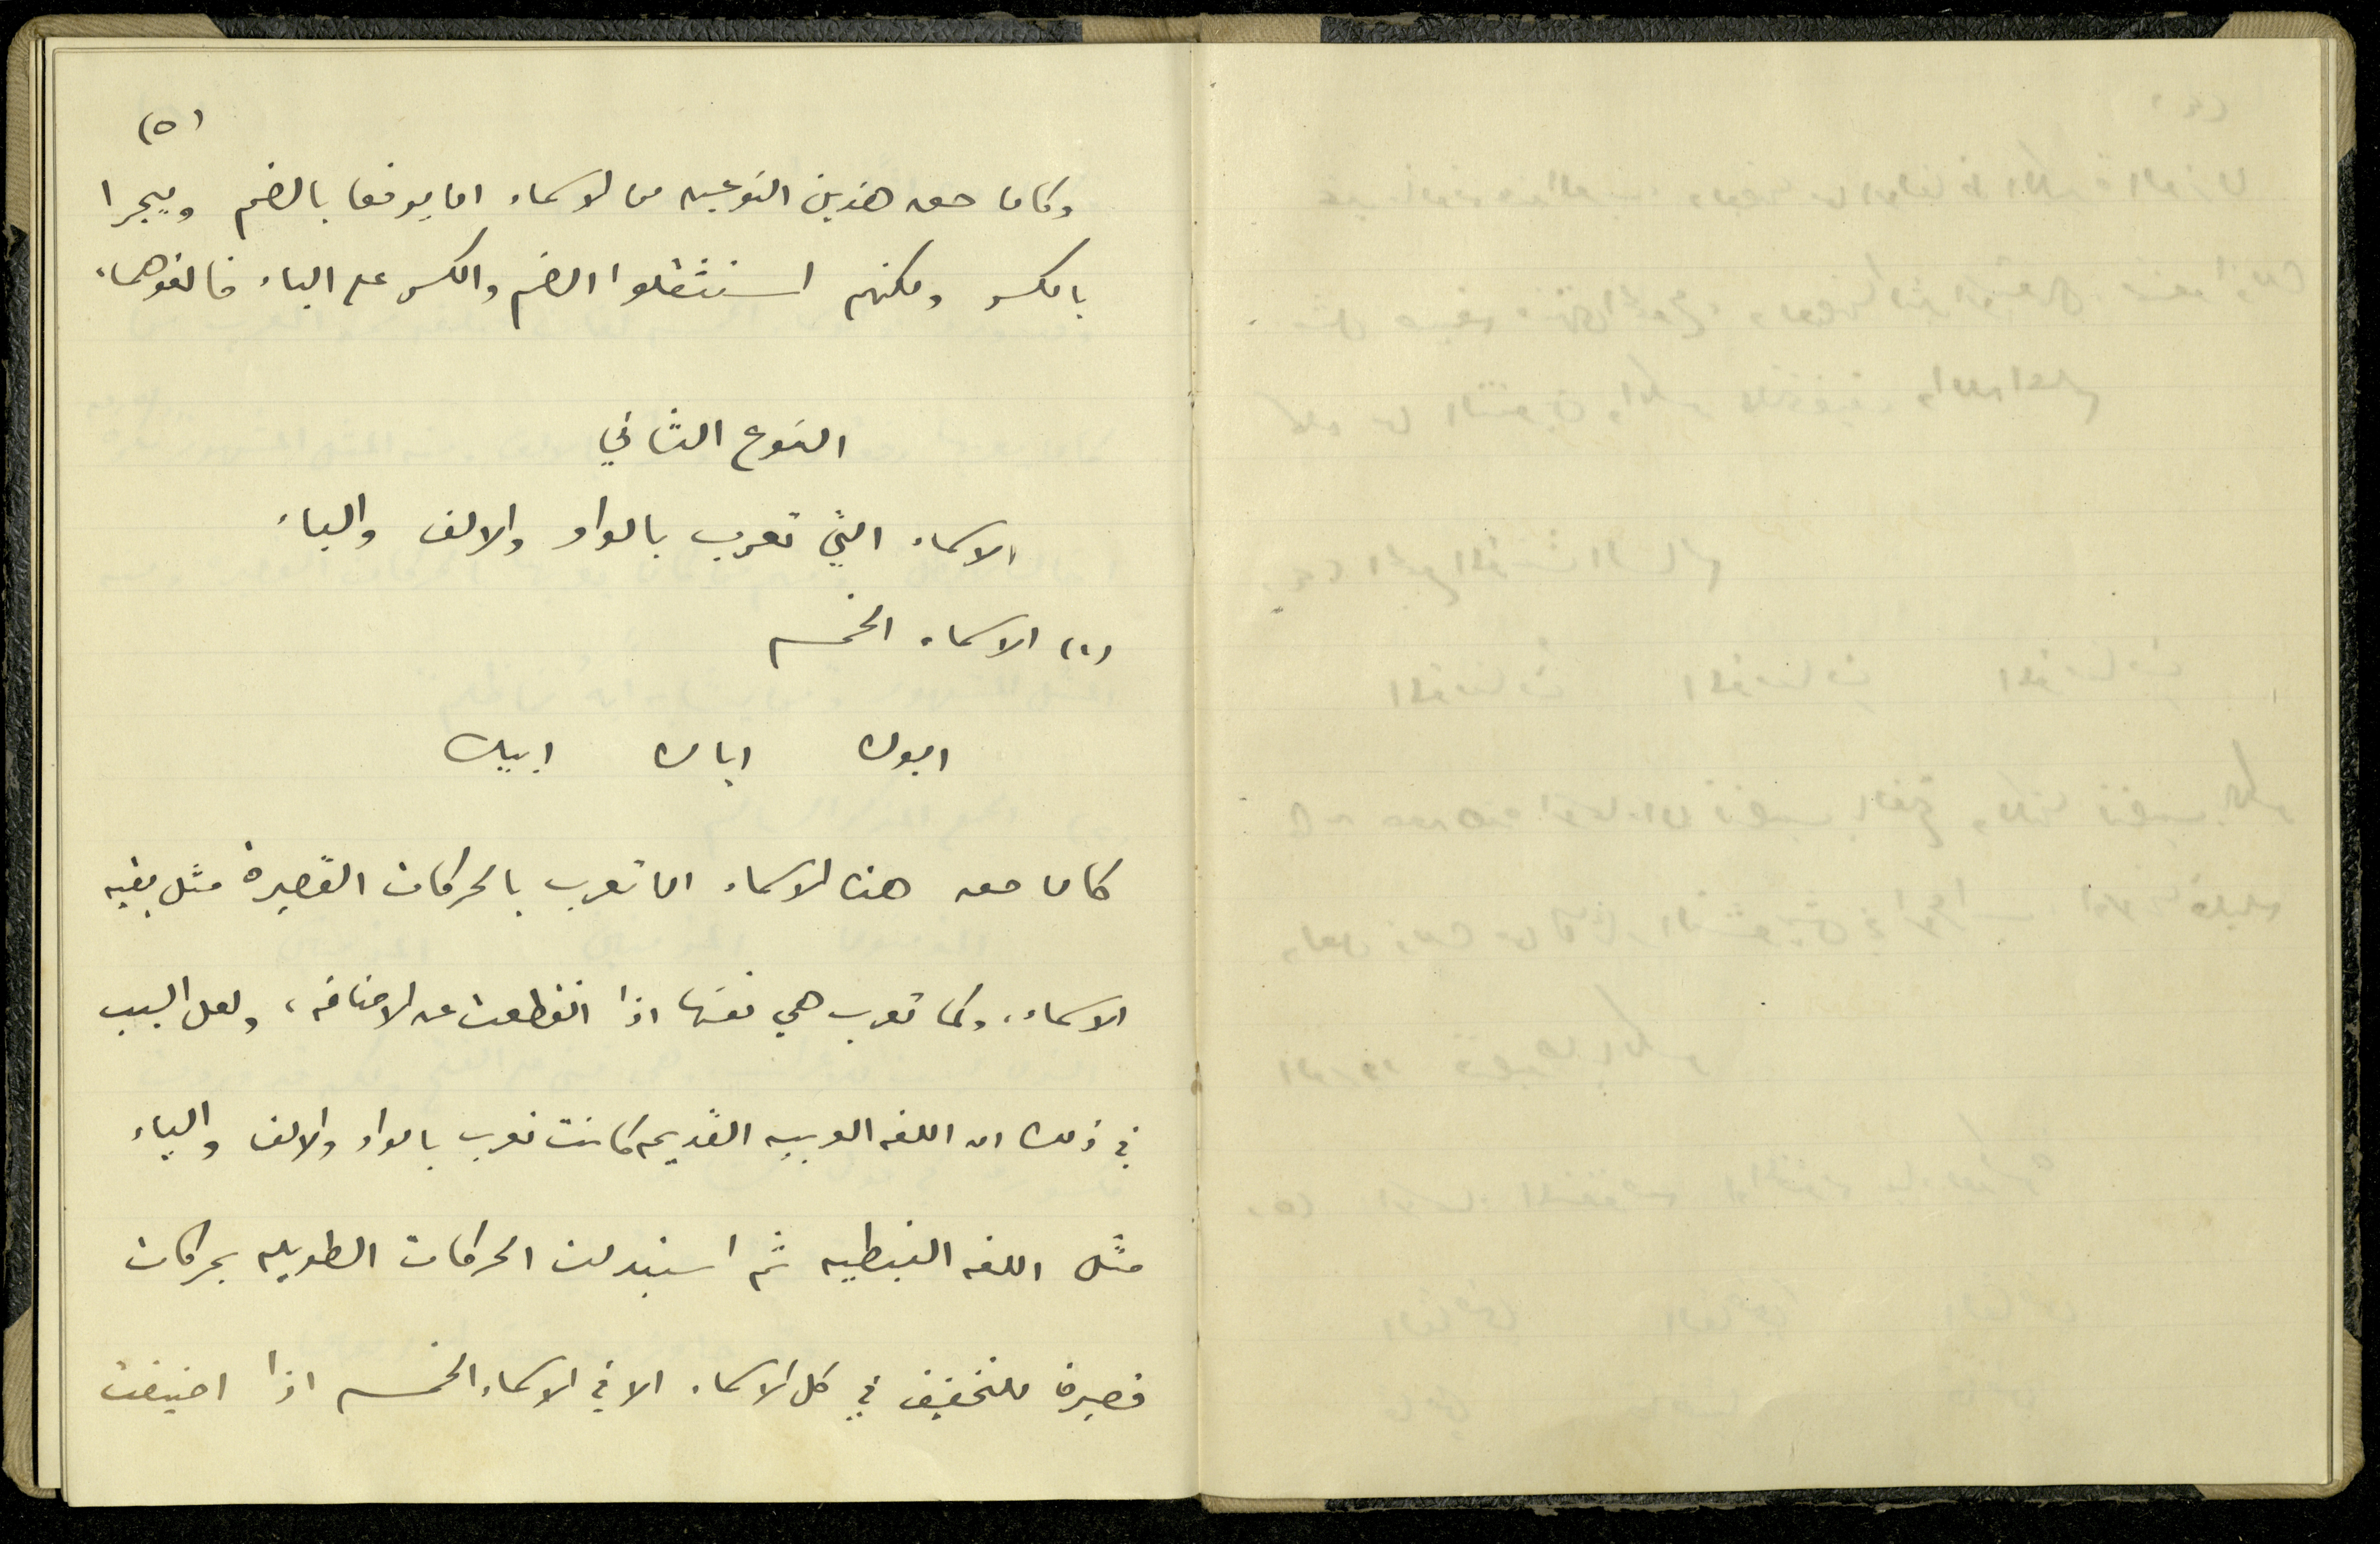 (٥)
وكان حق هذين النوعين من الاسماء ان يرفعا بالضم ويجرا
بالكسر ولكنهم استثقلوا الضم والكسر على الياء فالغوهما،
النوع الثاني
الاسماء التي تعرب بالواو والالف والياء
(١) الاسماء الخمسه
ابوك اباك ابيك
كان حق هذه الاسماء ان تعرب بالحركات القصيرة مثل بقيه
الاسماء، وكما تعرب هي نفسها اذا انقطعت عن الاضافه، ولعل السبب
في ذلك ان اللغه العربيه القديمه كانت تعرب بالواو والالف والياء
مثل اللغه النبطيه ثم استبدلت الحركات الطويله بحركات
قصيره للتخفيف في كل الاسماء الا في الاسماء الخمسه اذا اضيفت